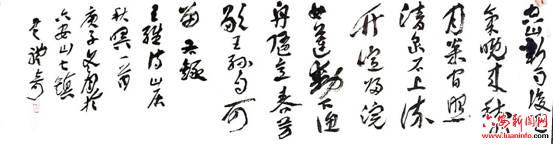 空山新雨後天
氣晚来秋明
月松間照
清泉石上流
竹喧歸浣
女蓮動下漁
舟隨意春芳
歇王孫自可
留右錄
王維詩山居
秋暝一首
庚子於
六安山七鎮
六安新闻网
www.luaninfo.com